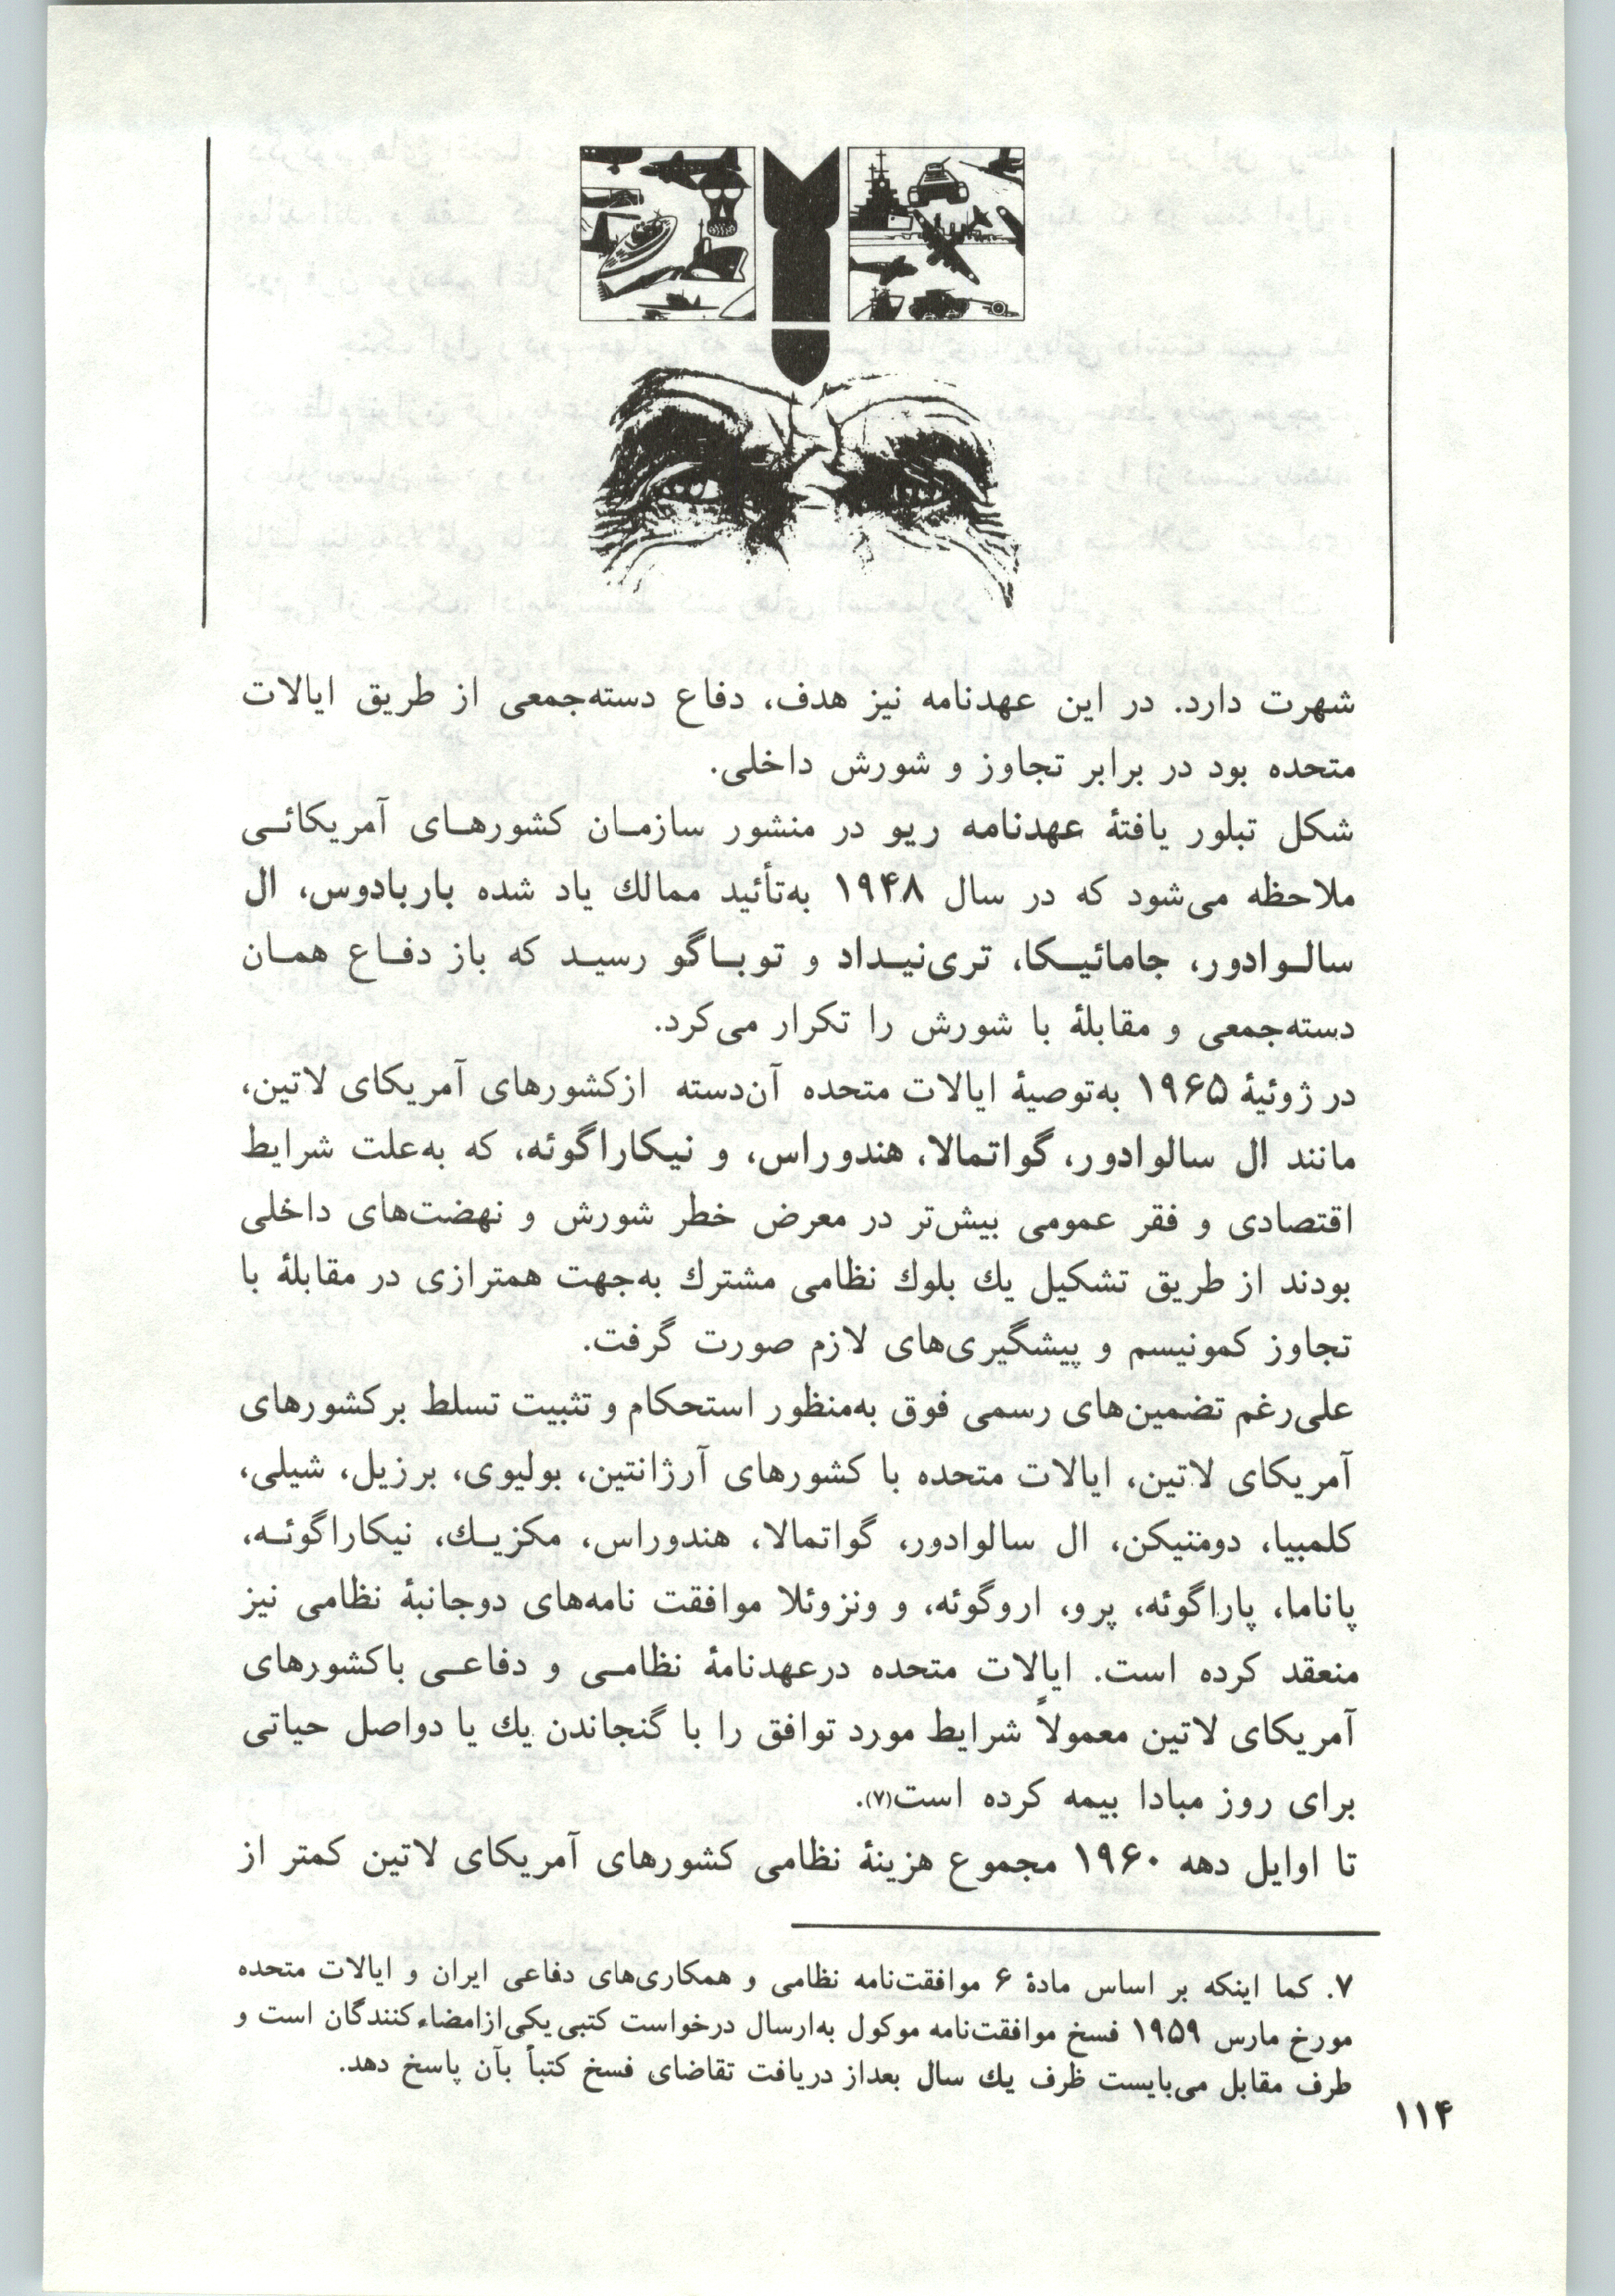 شهرت دارد. در این عهدنامه نیز هدف، دفاع دسته‌جمعی از طریق ایالات
متحده بود در برابر تجاوز و شورش داخلی.
شکل تبلور یافتۀ عهدنامه ریو در منشور سازمـان کشورهـای آمریکائـی
ملاحظه می‌شود که در سال ۱۹۴۸ به‌تأئید ممالك یاد شده باربادوس، ال
سالـوادور، جامائیـکا، تری‌نیـداد و توبـاگو رسیـد که باز دفـاع همـان
دسته‌جمعی و مقابلۀ با شورش را تکرار می‌کرد.
در ژوئیۀ ۱۹۶۵ به‌توصیۀ ایالات متحده آن‌دسته ازکشورهای آمریکای لاتین،
مانند ال سالوادور، گواتمالا، هندوراس، و نیکاراگوئه، که به‌علت شرایط
اقتصادی و فقر عمومی بیش‌تر در معرض خطر شورش و نهضت‌های داخلی
بودند از طریق تشکیل یك بلوك نظامی مشترك به‌جهت همترازی در مقابلۀ با
تجاوز کمونیسم و پیشگیری‌های لازم صورت گرفت.
علی‌رغم تضمین‌های رسمی فوق به‌منظور استحکام و تثبیت تسلط برکشورهای
آمریکای لاتین، ایالات متحده با کشورهای آرژانتین، بولیوی، برزیل، شیلی،
کلمبیا، دومنیکن، ال سالوادور، گواتمالا، هندوراس، مکزیـك، نیکاراگوئـه،
پاناما، پاراگوئه، پرو، اروگوئه، و ونزوئلا موافقت نامه‌های دوجانبۀ نظامی نیز
منعقد کرده است. ایالات متحده درعهدنامۀ نظامـی و دفاعـی باکشورهای
آمریکای لاتین معمولاً شرایط مورد توافق را با گنجاندن یك یا دواصل حیاتی
برای روز مبادا بیمه کرده است(۷).
تا اوایل دهه ۱۹۶۰ مجموع هزینۀ نظامی کشورهای آمریکای لاتین کمتر از
۷. کما اینکه بر اساس مادۀ ۶ موافقت‌نامه نظامی و همکاری‌های دفاعی ایران و ایالات متحده
مورخ مارس ۱۹۵۹ فسخ موافقت‌نامه موکول به‌ارسال درخواست کتبی یکی‌ازامضاءکنندگان است و
طرف مقابل می‌بایست ظرف یك سال بعداز دریافت تقاضای فسخ کتباً بآن پاسخ دهد.
۱۱۴